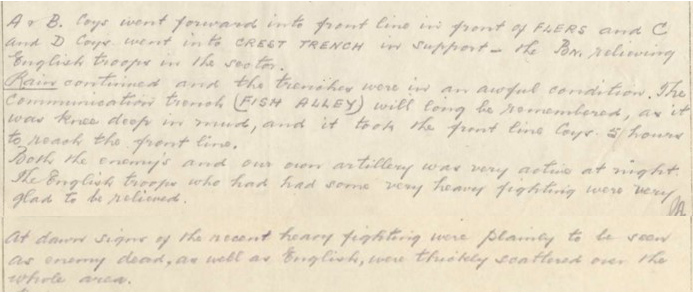 A & B. Coys went forward into front line in front of FLERS and C
and D Coys. went into CREST TRENCH in support - the Bn. relieving
English troops in the sector.
Rain continued and the trenches were in an awful condition. The
Communication trench (FISH ALLEY) will long be remembered, as it
was knee deep in mud, and it took the front line Coys. 5 hours
to reach the front line.
Both the enemy's and our own artillery was very active at night.
The English troops who had had some very heavy fighting were very
glad to be relieved.
At dawn signs of the recent heavy fighting were plainly to be seen
as enemy dead, as well as English, were thickly scattered over the
whole area.